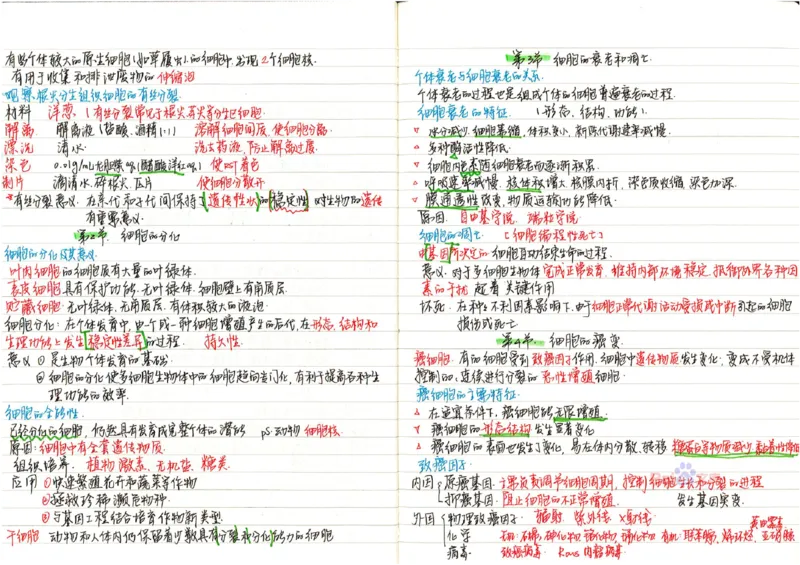 有些个体较大的原生细胞(如草履虫)的细胞中发现2个细胞核
有用于收集和排泄废物的伸缩泡
观察根尖分生组织细胞的有丝分裂
材料 洋葱 (有丝分裂常见于根尖芽尖等分生区细胞
解离 解离液(盐酸、酒精1:1) 溶解细胞间质,使细胞分离
漂洗 清水 洗去药液,防止解离过度
染色 0.01g/mL龙胆紫 或(醋酸洋红 使 着色
制片 滴清水、碎根尖、压片 使细胞分散开
*有丝分裂意义:在亲代和子代间保持了遗传性状的稳定性 对生物的遗传
有重要意义
第2节 细胞的分化
细胞的分化及其意义
叶肉细胞的细胞质有大量的叶绿体
表皮细胞具有保护功能,无叶绿体,细胞壁上有角质层
贮藏细胞:无叶绿体,无角质层,有体积较大的液泡
细胞分化:在个体发育中,由一个或一种细胞增殖产生的后代,在形态、结构和
生理功能上发生稳定性差异的过程. 持久性.
意义 ①是生物个体发育的基础
②细胞的分化使多细胞生物体中的细胞趋向专门化,有利于提高各种生
理功能的效率.
细胞的全能性
已经分化的细胞,仍然具有发育成完整个体的潜能 ps.动物细胞核
原因:细胞中有全套遗传物质
组织培养 植物激素、无机盐、糖类
应用 ①快速繁殖花卉和蔬菜等作物
②拯救珍稀濒危物种
③与基因工程结合培育作物新类型
干细胞 动物和人体内仍保留着少数具有分裂和分化能力的细胞
第3节 细胞的衰老和凋亡
个体衰老与细胞衰老的关系
个体衰老的过程也是组成个体的细胞普遍衰老的过程.
细胞衰老的特征 (形态、结构、功能)
水分减少,细胞萎缩,体积变小,新陈代谢速率减慢.
多种酶活性降低
细胞内色素随细胞衰老而逐渐积累.
呼吸速率减慢,核体积增大,核膜内折,染色质收缩,染色加深.
膜通透性改变,物质运输功能降低.
原因:自由基学说 端粒学说
细胞的凋亡 [细胞编程性死亡]
由基因所决定的细胞自动结束生命的过程.
意义:对于多细胞生物体完成正常发育,维持内部环境稳定,抵御外界各种因
素的干扰起着关键作用
坏死:在种种不利因素影响下,由于细胞正常代谢活动受损或中断引起的细胞
损伤或死亡.
第4节 细胞的癌变
癌细胞:有的细胞受到致癌因子作用,细胞中遗传物质发生变化,变成不受机体
控制的,连续进行分裂的恶性增殖细胞.
癌细胞的主要特征:
在适宜条件下,癌细胞能无限增殖.
癌细胞的形态结构发生显著变化
癌细胞的表面也发生了变化,易在体内分散、转移 糖蛋白等物质减少,黏着性降低
致癌因子
内因 原癌基因:主要负责调节细胞周期,控制细胞生长和分裂的进程
抑癌基因:阻止细胞的不正常增殖 发生基因突变
外因 物理致癌因子: 辐射 紫外线 X射线
黄曲霉素
化学
病毒 致癌病毒 Rous肉瘤病毒